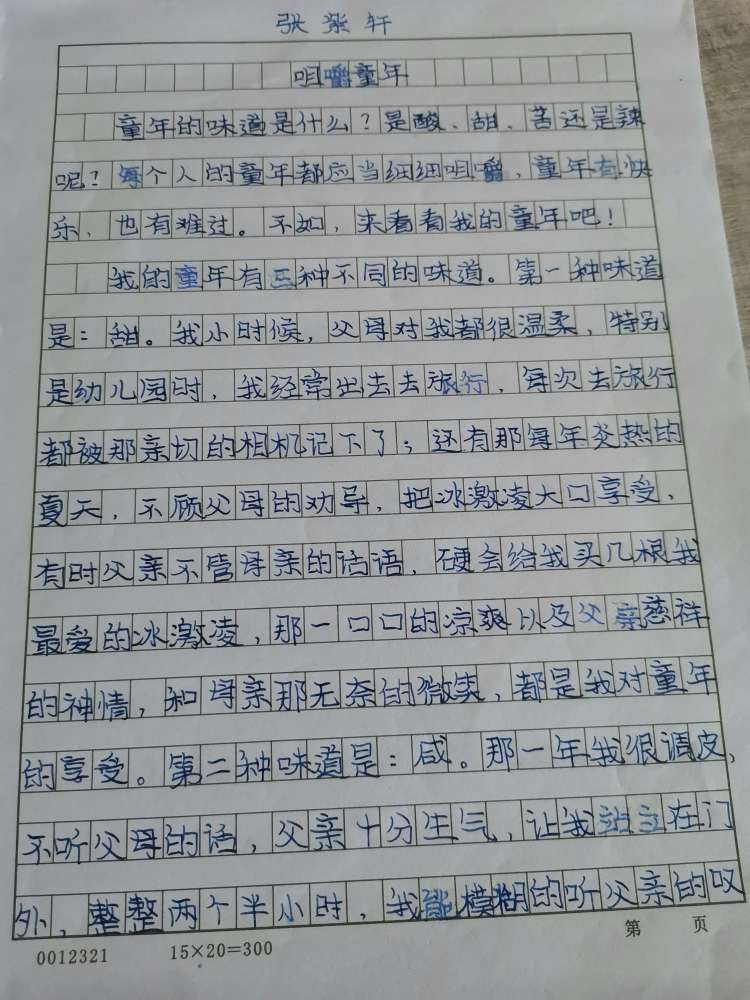 张紫轩
咀嚼童年
童年的味道是什么?是酸、甜、苦还是辣
呢?每个人的童年都应当细细咀嚼,童年有快
乐,也有难过。不如,来看看我的童年吧!
我的童年有三种不同的味道。第一种味道
是:甜。我小时候,父母对我都很温柔,特别
是幼儿园时,我经常出去去旅行,每次去旅行
都被那亲切的相机记下了;还有那每年炎热的
夏天,不顾父母的劝导,把冰激凌大口享受,
有时父亲不管母亲的话语,硬会给我买几根我
最爱的冰激凌,那一口口的凉爽以及父亲慈祥
的神情,和母亲那无奈的微笑,都是我对童年
的享受。第二种味道是:咸。那一年我很调皮,
不听父母的话,父亲十分生气,让我站立在门
外,整整两个半小时,我能模糊的听父亲的叹
第 页
0012321 15×20=300